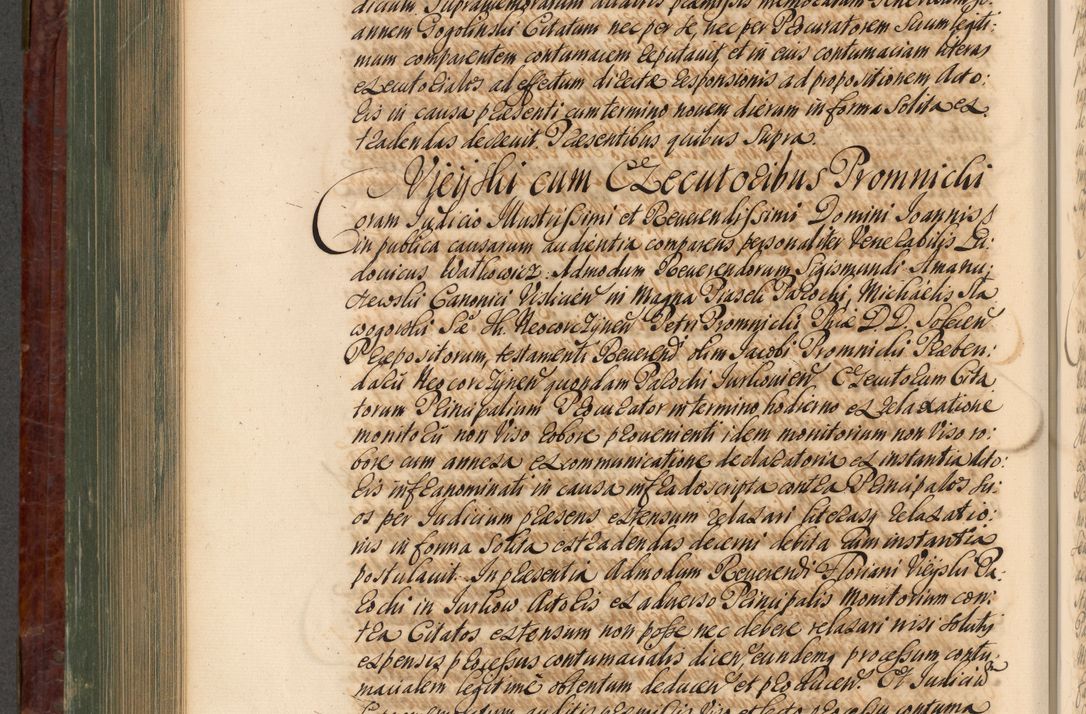 dictum Supramemoratum auditis praemissis memoratum Generosum Jo:
annem Gogolinski Citatum nec per se, nec per Procuratorem Suum legiti:
mum comparentem contumacem reputavit, et in eius contumaciam literas
executoriales ad effectum directae responsionis ad propositionem Acto:
ris in causa praesenti cum termino novem dierum in forma solita ex
tradendas decrevit. Praesentibus quibus Supra.
Vieyski cum Executoribus Promnicki
Coram Judicio Illustrissimi et Reverendissimi Domini Joannis
in publica causarum audientia comparens personaliter Venerabilis Lu:
dovicus Watkowicz Admodum Reverendorum Sigismundi Amanu:
Canonici Vislicien in Magna Piaseli Parochi, Michaelis Sta
wogorski Neocorczynen Petri Promnicki Phiae DD. Solecen
Praepositorum, testamenti Reverendi olim Jacobi Promnicki Praeben:
darii Neocorczynen quondam Parochi Jurkovien Executorum Cita
torum Principalium Procurator in termino hodierno ex relaxatione
monitorii non viso robore provenienti idem monitorium non viso ro:
bore cum annexa excommunicatione declaratoria ex instantia Acto:
ris infranominati in causa infradescripta contra Principales su:
os per Judicium praesens extensum relaxari literasq relaxatio:
nis in forma solita extradendas decerni debita cum instantia
postulavit. In praesentia Admodum Reverendi Floriani Vieyski Pa:
rochi in Jurkow Actoris ex adverso Principalis monitorium con:
tra Citatos extensum non posse nec debere relaxari nisi solutis
expensis processus contumacialis dicen, eundemq processum contu:
macialem legitime obtentum deducen et producen. Et Judicium